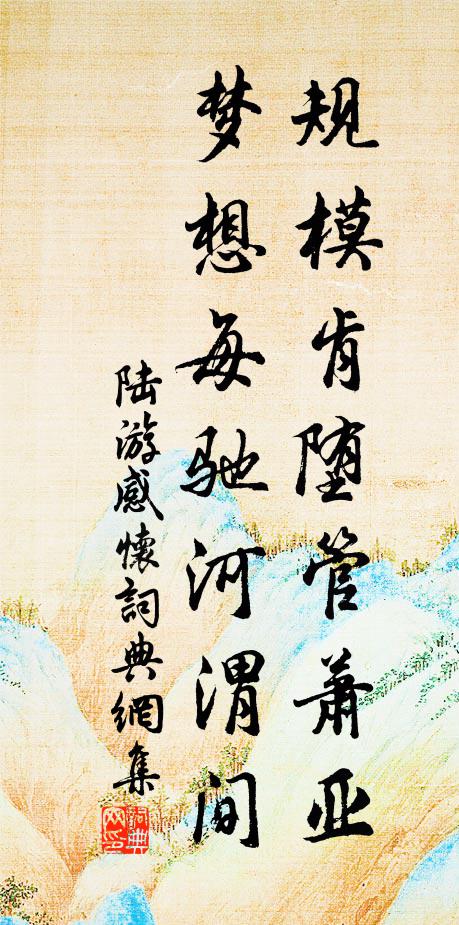 规模肯堕管萧亚
梦想每驰河渭间
陆游感懷詞典網集
詞典